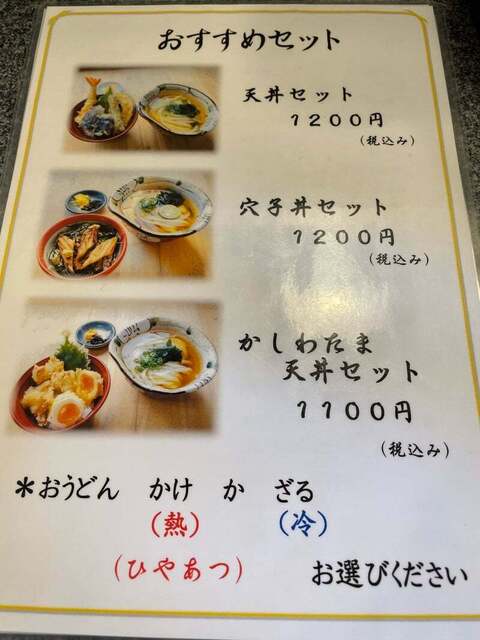 おすすめセット
天丼セット
1200円
(税込み)
穴子丼セット
1200円
(税込み)
かしわたま
天丼セット
1100円
(税込み)
*おうどん かけ か ざる
(熱) (冷)
(ひやあつ) お選びください